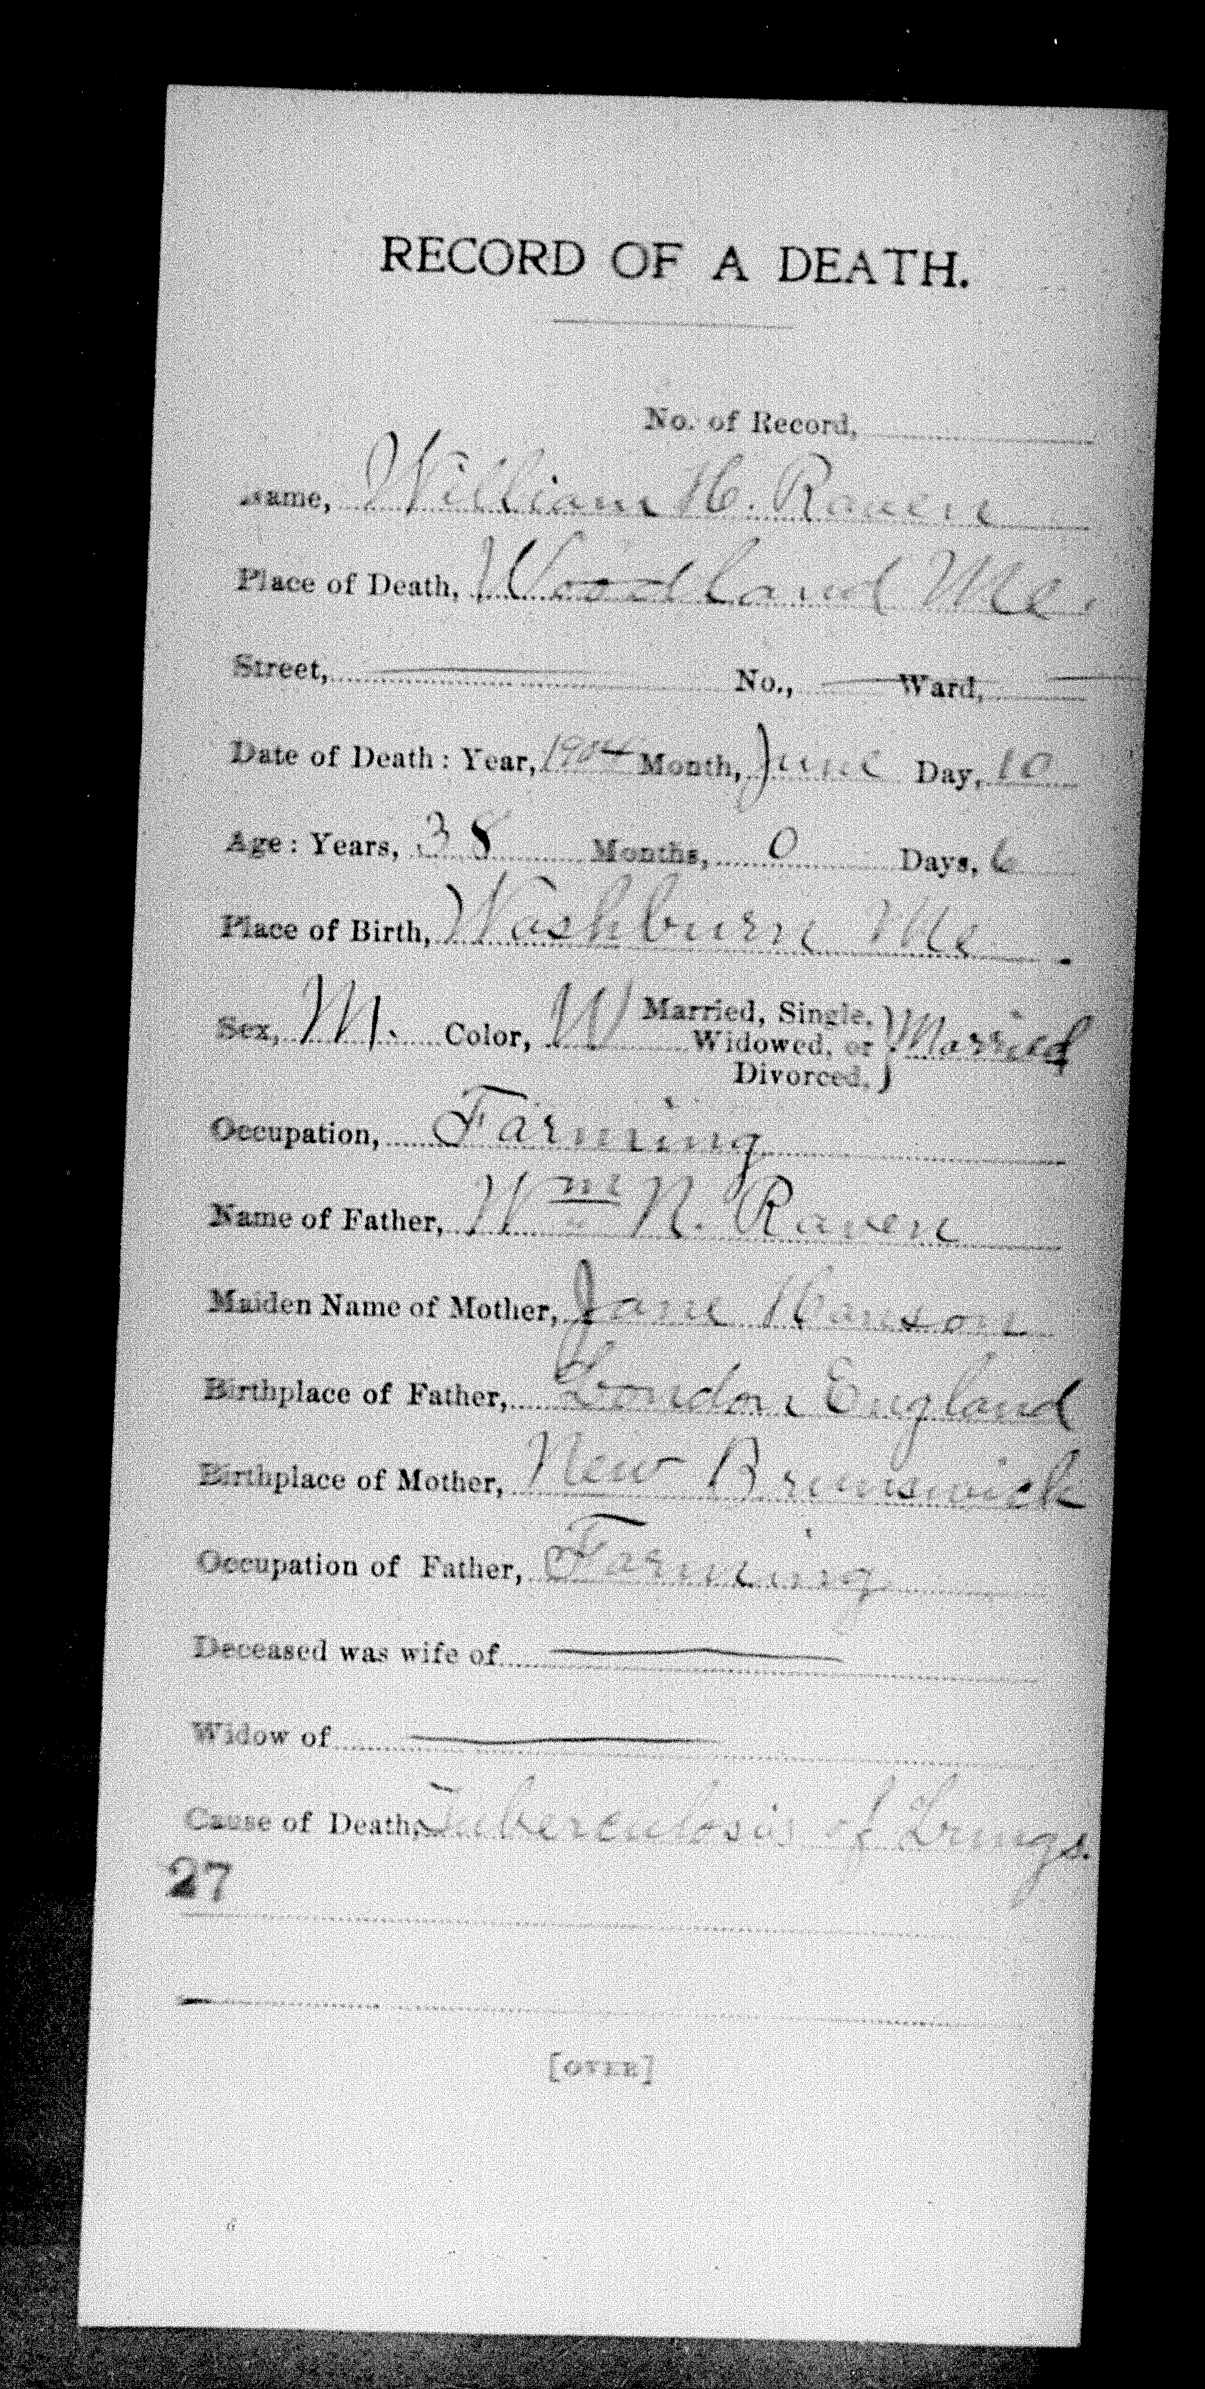 RECORD OF A DEATH.
No. of Record,
Name, William H. Raven
Place of Death, Woodland Me.
Street, — No., — Ward, —
Date of Death: Year, 1904 Month, June Day, 10
Age: Years, 38 Months, 0 Days, 6
Place of Birth, Washburn Me.
Sex, M. Color, W Married, Single,
Widowed, or } Married
Divorced.
Occupation, Farming
Name of Father, Wm N. Raven
Maiden Name of Mother, Jane Hanson
Birthplace of Father, London England
Birthplace of Mother, New Brunswick
Occupation of Father, Farming
Deceased was wife of —
Widow of —
Cause of Death, Tuberculosis of Lungs.
27
[OVER]